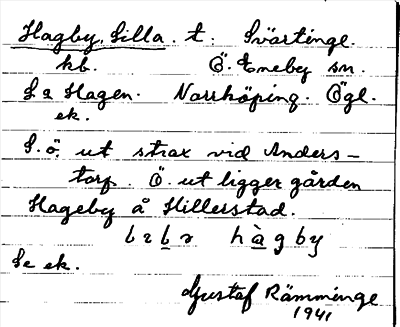 Hagby, Lilla. t. Svärtinge.
kb. Ö. Eneby sn.
L a Hagen. Norrköping. Ögl.
ek.
S. ö. ut strax vid Anders-
torp. Ö. ut ligger gården
Hageby å Hillerstad.
hàgby
Se ek.
Gustaf Rämminge
1941